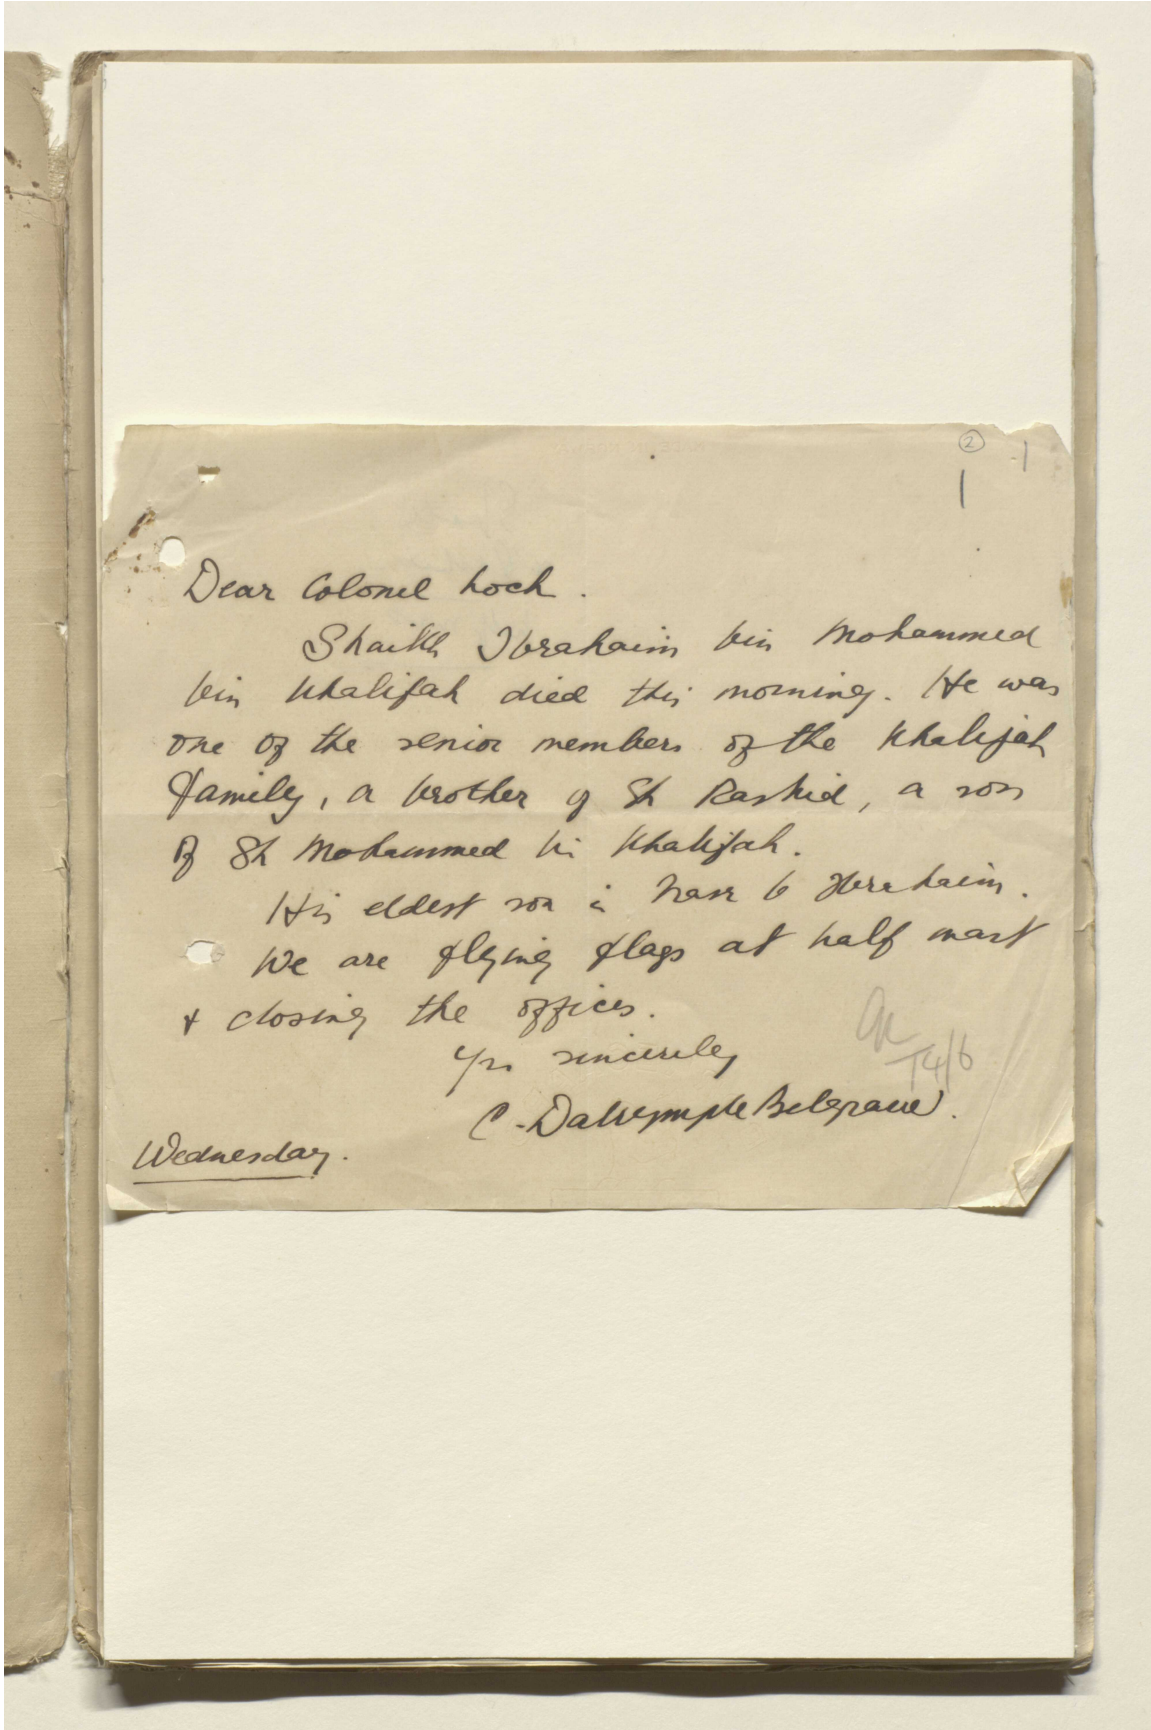 2
1
1
Dear Colonel Loch.
Shaikh Ibrahaim bin Mohammed
bin Khalifah died this morning. He was
one of the senior members of the Khalifah
family, a brother of Sh Rashid, a son
of Sh Mohammed bin Khalifah.
His eldest son is Nasr b Ibrahaim.
We are flying flags at half mast
& closing the offices.
Yrs sincerely
14/6
C. Dalrymple Belgrave.
Wednesday.